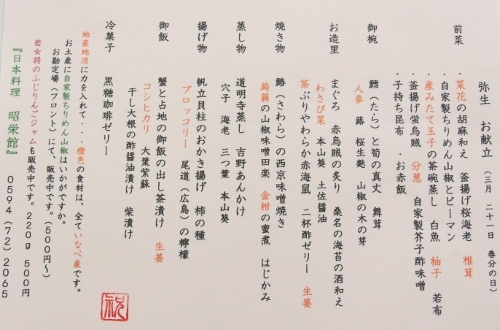 弥生　お献立　(三月　二十一日　春分の日)
前菜　・菜花の胡麻和え　釜揚げ桜海老　椎茸
・自家製ちりめん山椒とピーマン
・産みたて玉子の茶碗蒸し　白魚　柚子　若布
・釜揚げ蛍烏賊　分葱　自家製芥子酢味噌
・子持ち昆布　・お赤飯
御椀　鱈(たら)と筍の真丈　舞茸
人参　蕗　桜生麩　山椒の木の芽
お造里　まぐろ　赤烏賊の炙り　桑名の海苔の酒和え
わさび菜　本山葵　土佐醤油
茶ぶりやわらか赤海鼠　二杯酢ゼリー　生姜
焼き物　鰆(さわら)の西京味噌焼き
蒟蒻の山椒味噌田楽　金柑の蜜煮　はじかみ
蒸し物　道明寺蒸し　吉野あんかけ
穴子　海老　三つ葉　本山葵
揚げ物　帆立貝柱のおかき揚げ　柿の種
ブロッコリー　尾道(広島)の檸檬
御飯　蟹と占地の御飯の出し茶漬け　生姜
コシヒカリ　大葉紫蘇
干し大根の酢醤油漬け　柴漬け
冷菓子　黒糖珈琲ゼリー
地産地消に力を入れて・・・橙色の食材は、全ていなべ産です。
お土産に自家製ちりめん山椒はいかがですか。
お勘定場(フロント)にて、販売中です。(500円〜)
若女将のふじりんごジャムも販売中です。220g 500円
『日本料理　昭栄館』　0594(72)2065
祝